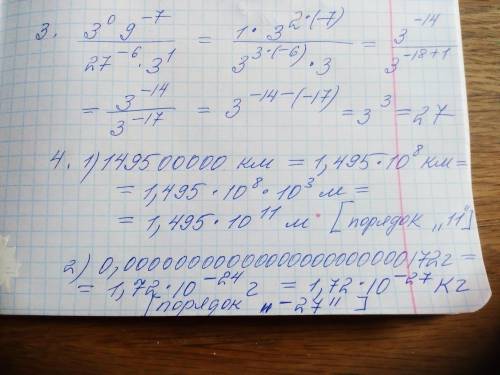 3. 3⁰ 9⁻⁷ / 27⁻⁶ · 3¹ = 1 · 3^(2·(-7)) / 3^(3·(-6)) · 3 = 3⁻¹⁴ / 3⁻¹⁸⁺¹
= 3⁻¹⁴ / 3⁻¹⁷ = 3^(-14-(-17)) = 3³ = 27
4. 1) 149500000 км = 1,495 · 10⁸ км =
= 1,495 · 10⁸ · 10³ м =
= 1,495 · 10¹¹ м [порядок „11"]
2) 0,00000000000000000000000172г =
= 1,72 · 10⁻²⁴ г = 1,72 · 10⁻²⁷ кг
[порядок „-27"]